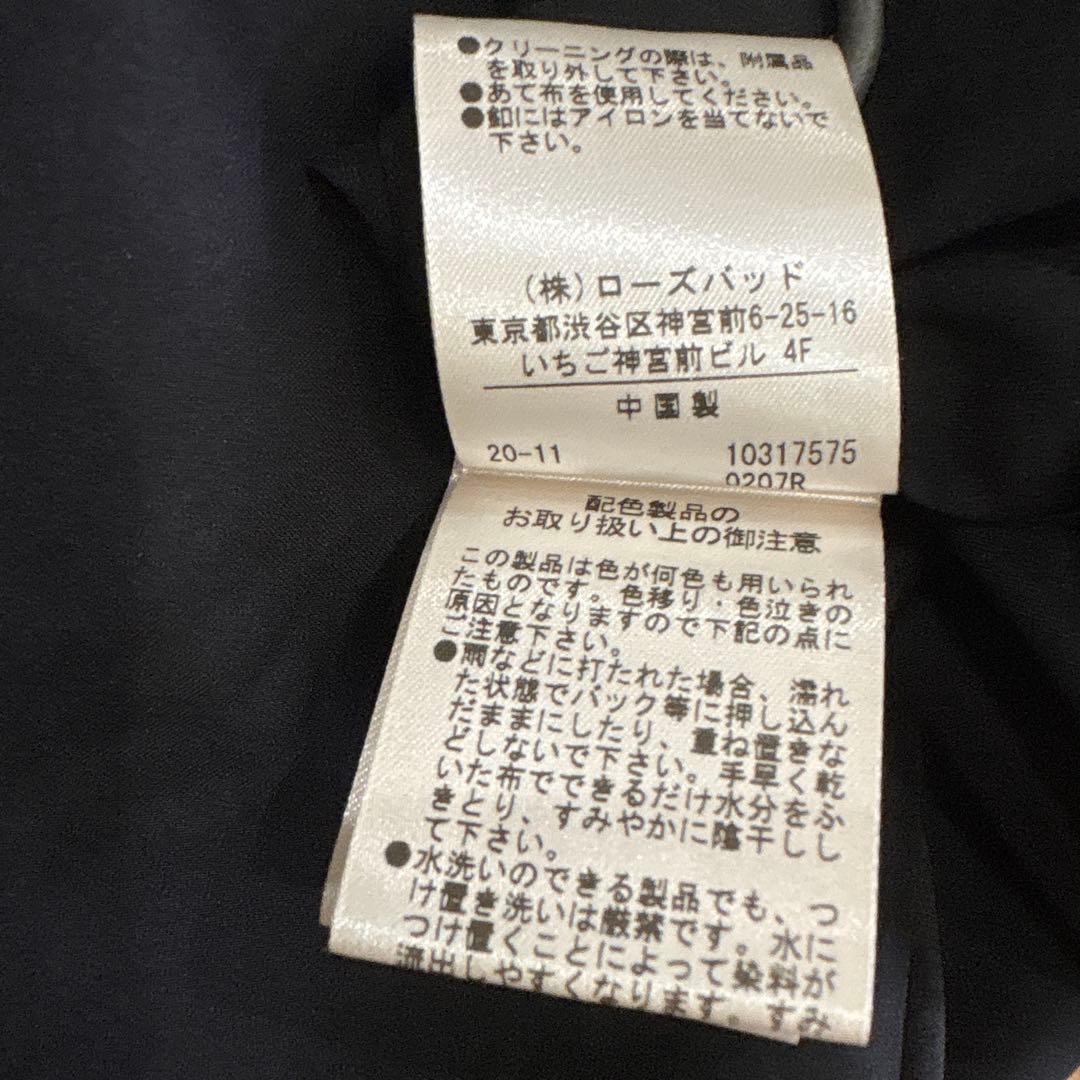 ●クリーニングの際は、金属品
を取り外して下さい。
●あて布を使用してください。
●釦にはアイロンを当てないで
下さい。
(株)ローズバッド
東京都渋谷区神宮前6-25-16
いちご神宮前ビル 4F
中国製
20-11 10317575
0207R
配色製品の
お取り扱い上の御注意
この製品は色が何色も用いられ
たものです。色移り・色泣きの
原因となりますので下記の点に
ご注意下さい。
●雨などに打たれた場合、濡れ
た状態でバック等に押し込ん
だままにしたり、重ね置きな
どしないで下さい。手早く乾
いた布でできるだけ水分をふ
きとり、すみやかに陰干しし
て下さい。
●水洗いのできる製品でも、つ
け置き洗いは厳禁です。水に
つけ置くことによって染料が
流出しやすくなります。すみ